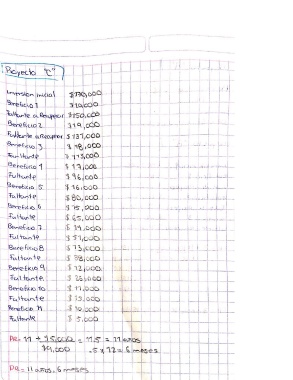 Proyecto "C"
Inversion inicial $170,000
Beneficio 1 $20,000
Faltante a Recuperar $150,000
Beneficio 2 $19,000
Faltante a Recuperar $131,000
Beneficio 3 $18,000
Faltante $113,000
Beneficio 4 $17,000
Faltante $96,000
Beneficio 5 $16,000
Faltante $80,000
Beneficio 6 $15,000
Faltante $65,000
Beneficio 7 $14,000
Faltante $51,000
Beneficio 8 $13,000
Faltante $38,000
Beneficio 9 $12,000
Faltante $26,000
Beneficio 10 $11,000
Faltante $15,000
Beneficio 11 $10,000
Faltante $5,000
PR= 11 +
= 11.5 = 11 años
.5 x 12 = 6 meses
PR = 11 años, 6 meses